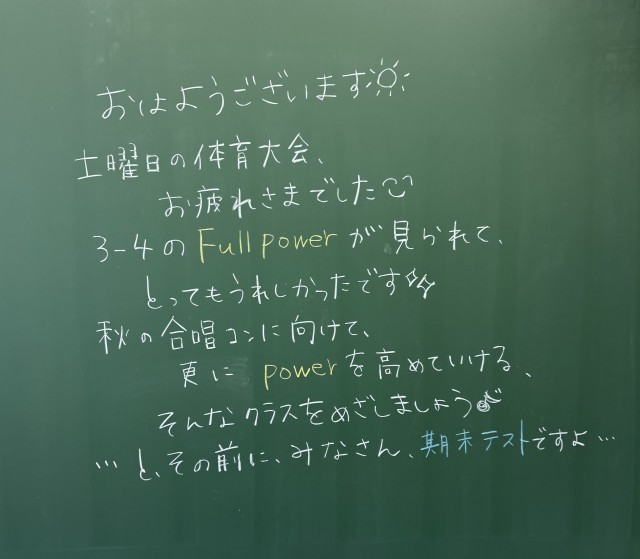 おはようございます
土曜日の体育大会、
お疲れさまでした
3-4のFull powerが見られて、
とってもうれしかったです
秋の合唱コンに向けて、
更に powerを高めていける、
そんなクラスをめざしましょう♪
…と、その前に、みなさん、期末テストですよ…